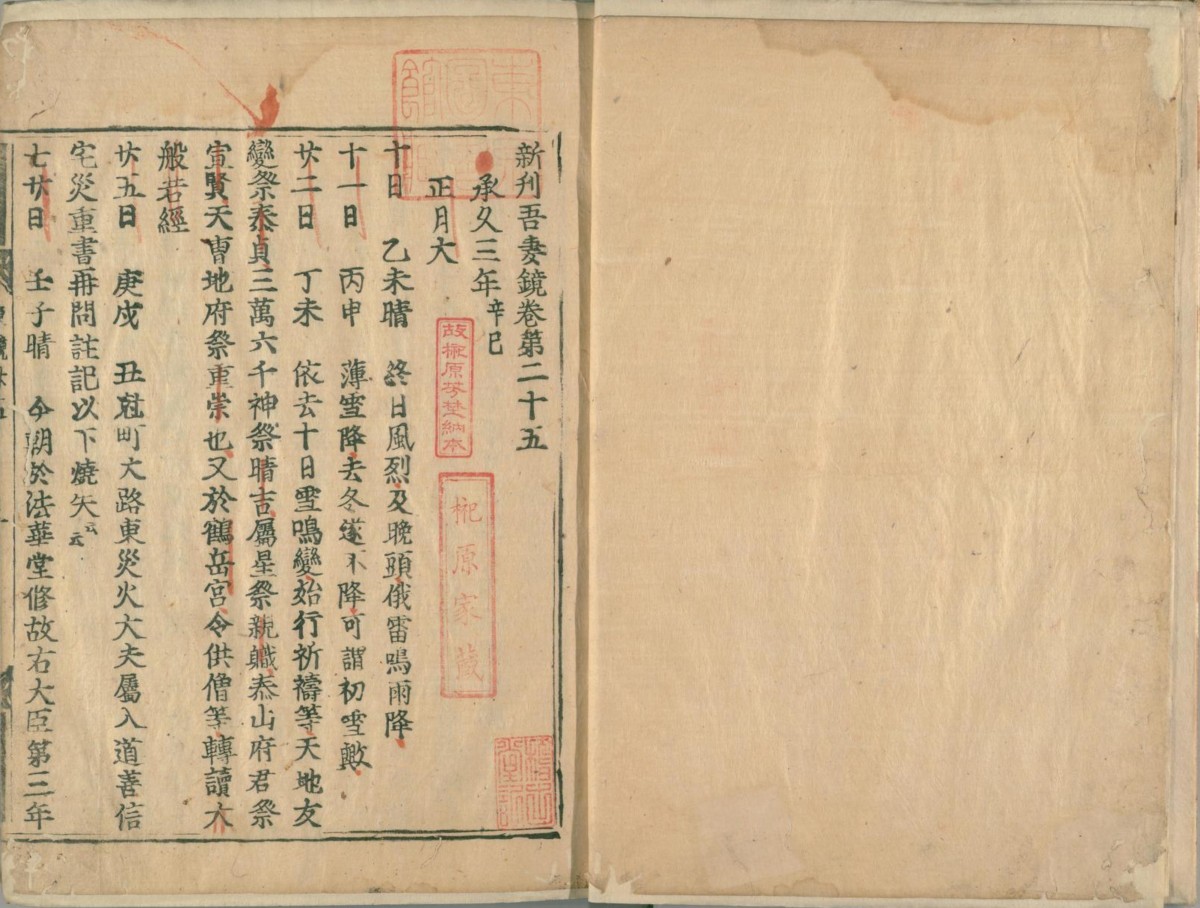 新刊吾妻鏡卷第二十五
承久三年辛巳
正月大
十日 乙未晴 終日風烈及晚頭俄雷鳴雨降
十一日 丙申 薄雪降去冬遂不降可謂初雪歟
廿二日 丁未 依去十日雷鳴變始行祈禱等天地友
變祭泰貞三萬六千神祭晴吉屬星祭親職泰山府君祭
宣賢天曹地府祭重宗也又於鶴岳宮令供僧等轉讀大
般若經
廿五日 庚戌 丑尅町大路東災火大夫屬入道善信
宅災重書并問註記以下燒失云云
七廿日 壬子晴 今朝於法華堂修故右大臣第三年
故榊原芳埜納本
榊原家藏